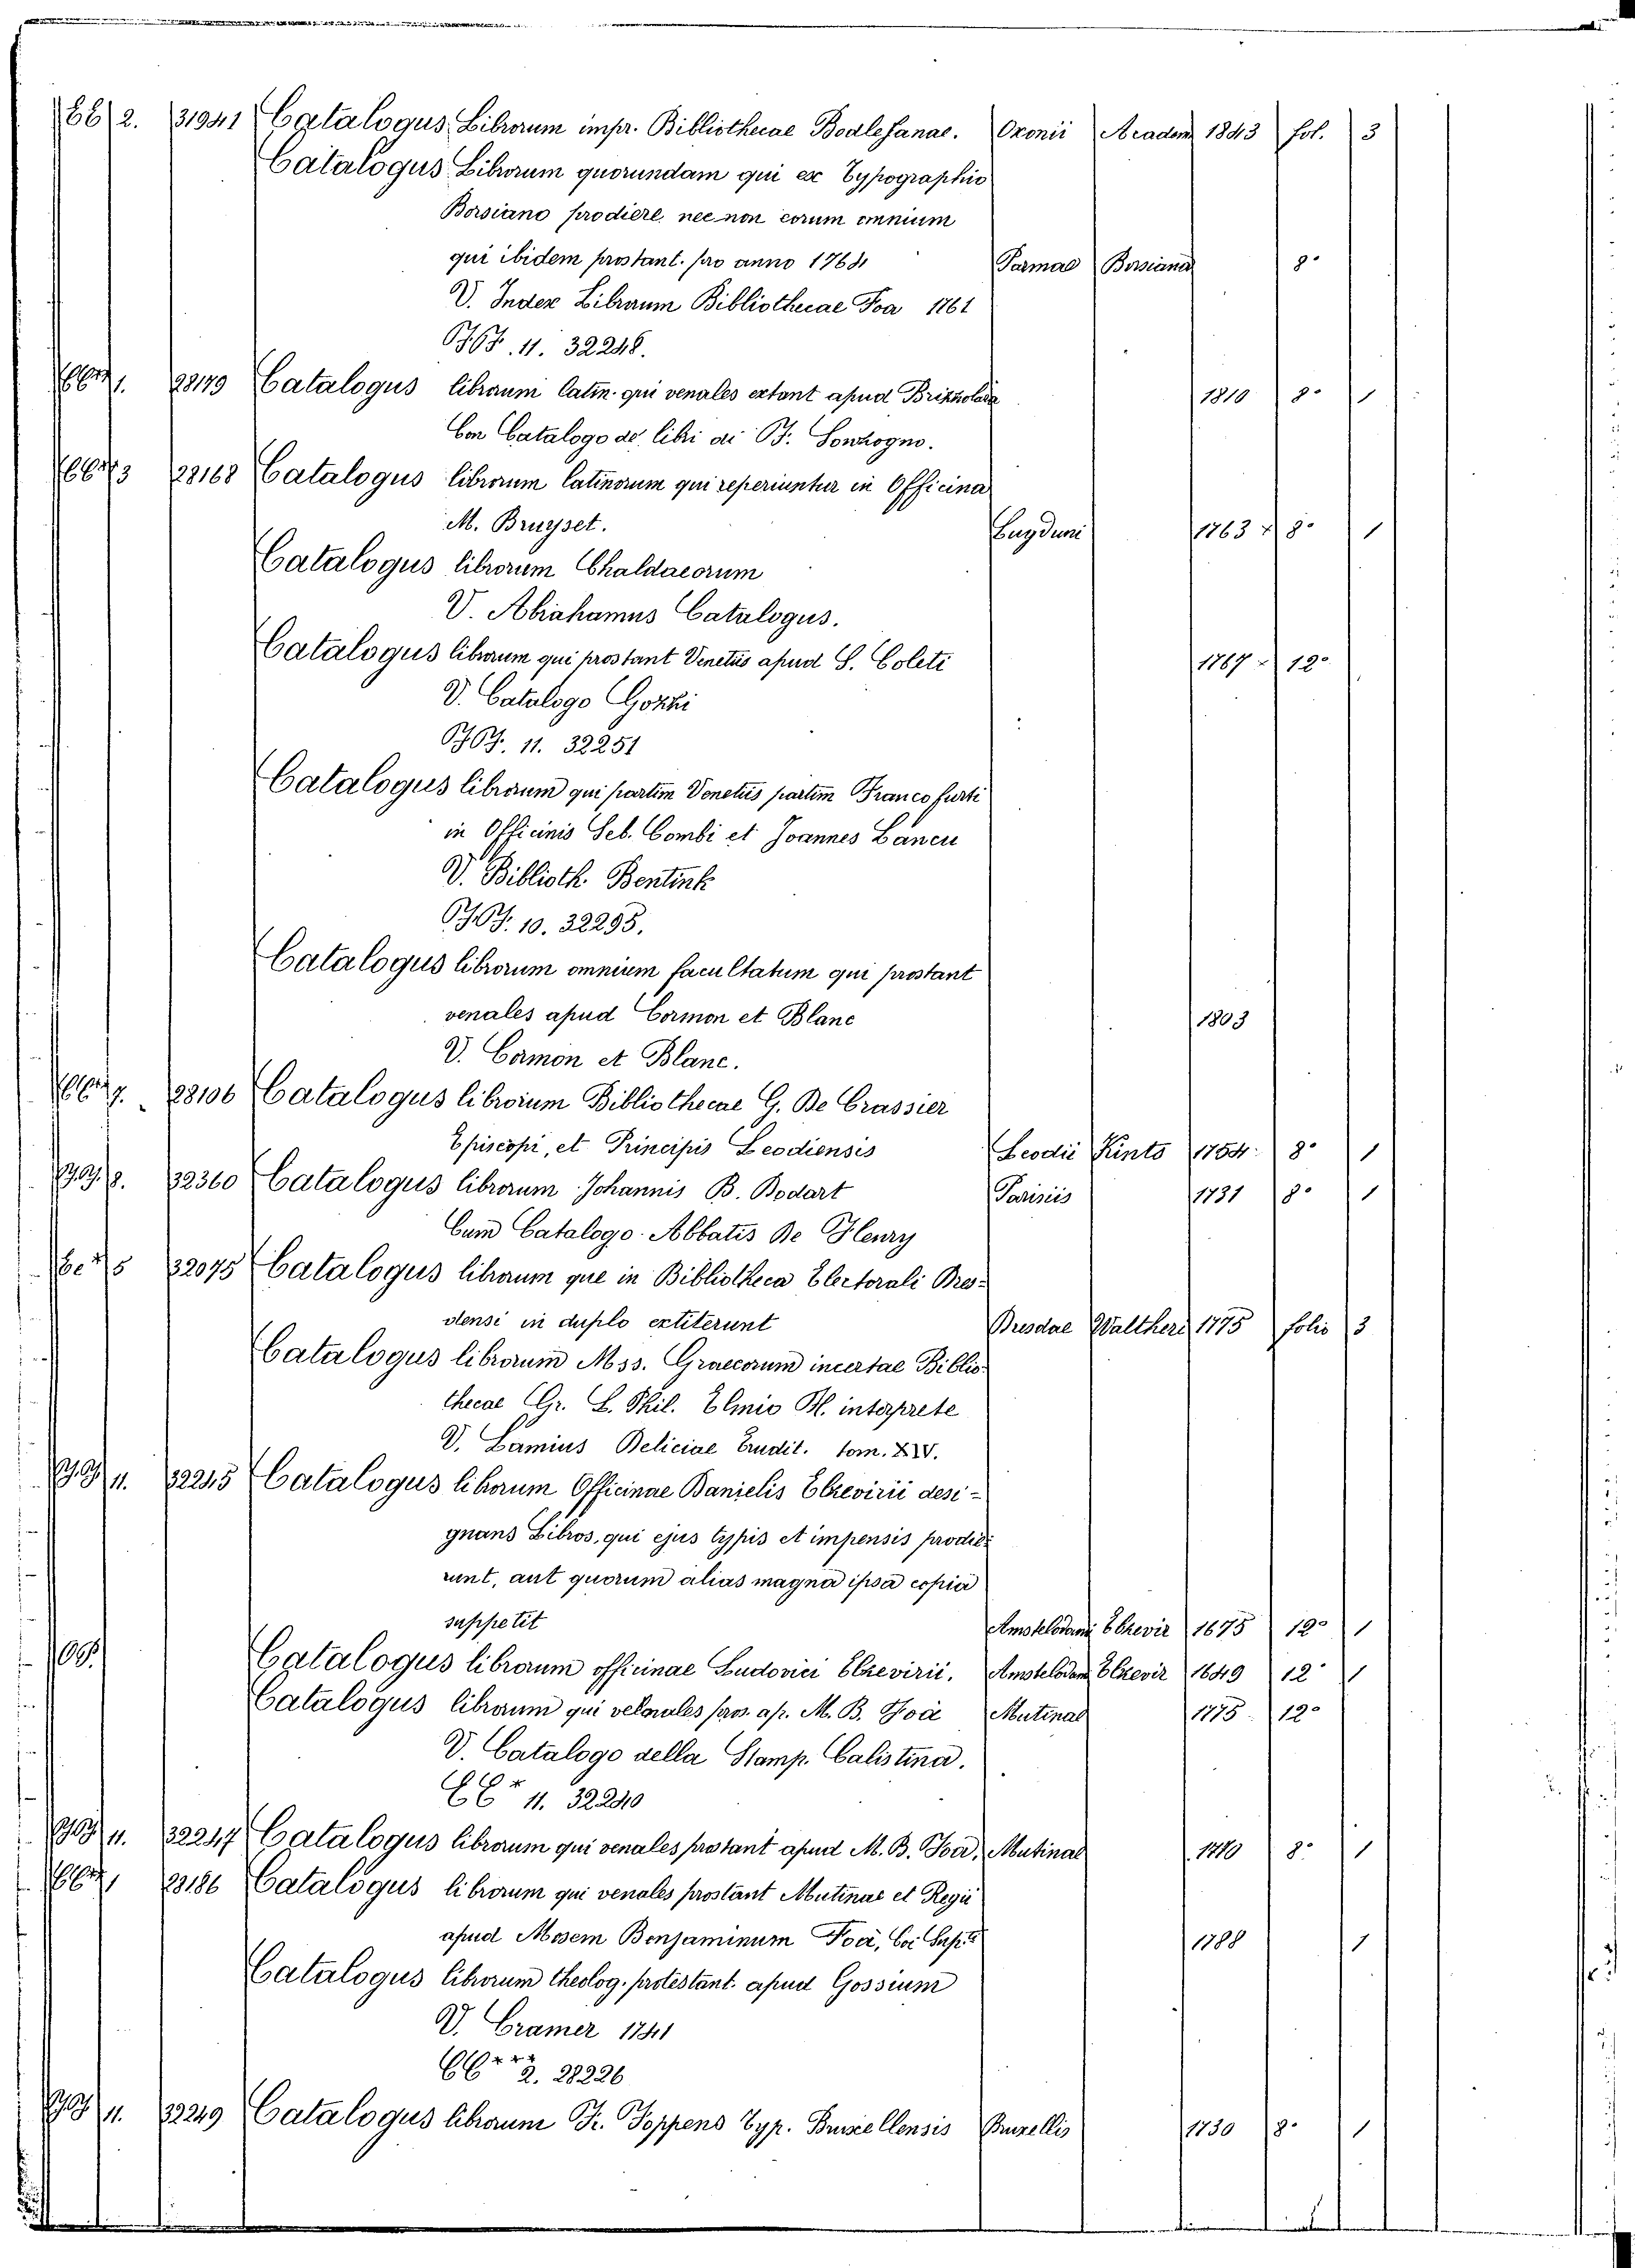 2. 31941 Catalogus Librorum impr. Bibliothecae Bodlesanae. Oxonii Academ 1843 fol. 3
Catalogus Librorum quorundam qui ex Typographio
Borsiano prodiere nec non eorum omnium
qui ibidem prostant. pro anno 1764 Parmae Borsiana 8°
V. Index Librorum Bibliothecae Foa 1761
11. 32248.
1. 28179 Catalogus librorum Latin. qui venales extant apud Brizzolara 1810 8° 1
Con Catalogo de libri di F. Sonzogno.
3 28168 Catalogus librorum latinorum qui reperiuntur in Officina
M. Bruyset. Lugduni 1763 8° 1
Catalogus librorum Chaldaeorum
V. Abrahamus Catalogus.
Catalogus librorum qui prostant Venetiis apud S. Coleti 1767 12°
V. Catalogo Gozzi
11. 32251
Catalogus librorum qui partim Venetiis partim Francofurti
in Officinis Seb. Combi et Joannes Lancii
V. Biblioth. Bentink
10. 32295.
Catalogus librorum omnium facultatum qui prostant
venales apud Cormon et Blanc 1803
V. Cormon et Blanc.
7. 28106 Catalogus librorum Bibliothecae G. De Crassier
Episcopi, et Principis Leodiensis Leodii Kints 1754. 8° 1
8. 32360 Catalogus librorum Johannis B. Bodart Parisiis 1731 8° 1
Cum Catalogo Abbatis De Fleury
5 32075 Catalogus librorum que in Bibliotheca Electorali Dres-
densi in duplo extiterunt Dresdae Waltheri 1775 folio 3
Catalogus librorum Mss. Graecorum incertae Biblio-
thecae Gr. L. Phil. Elmio H. interprete
V. Lamius Deliciae Erudit. tom. XIV.
11. 32245 Catalogus librorum Officinae Danielis Elzevirii desi-
gnans Libros, qui ejus typis et impensis prodie-
runt, aut quorum alias magna ipsa copia
suppetit Amstelodami Elzevir 1675 12° 1
Catalogus librorum officinae Ludovici Elzevirii. Amstelodam Elzevir 1649 12° 1
Catalogus librorum qui velnales pros. ap. M. B. Foa Mutinae 1775. 12°
V. Catalogo della Stamp. Calistina.
11. 32240
11. 32247 Catalogus librorum qui venales prostant apud M. B. Foa, Mutinae 1770 8° 1
1 28186 Catalogus librorum qui venales prostant Mutinae et Regii
apud Mosem Benjaminum Foa, 1788 1
Catalogus librorum theolog. protestant. apud Gossium
V. Cramer 1741
2. 28226
11. 32249 Catalogus librorum Fr. Foppens Typ. Bruxellensis Bruxellis 1730 8° 1